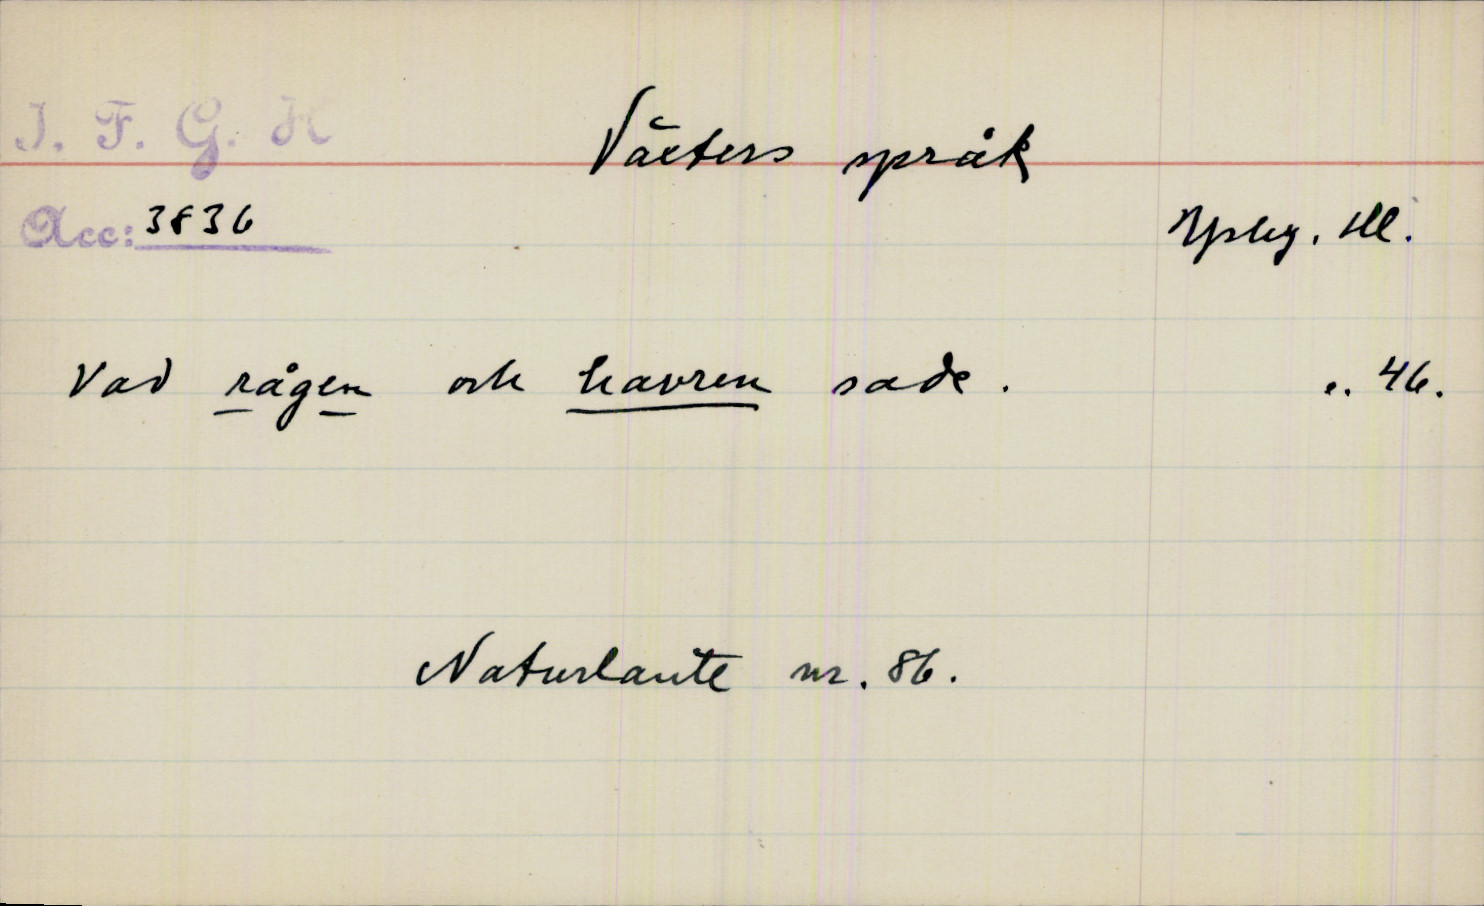 I. F. G. H
Växters språk
Acc: 3836
Ysby. Hl.
Vad rågen och havren sade. s. 46.
Naturlaute nr. 86.